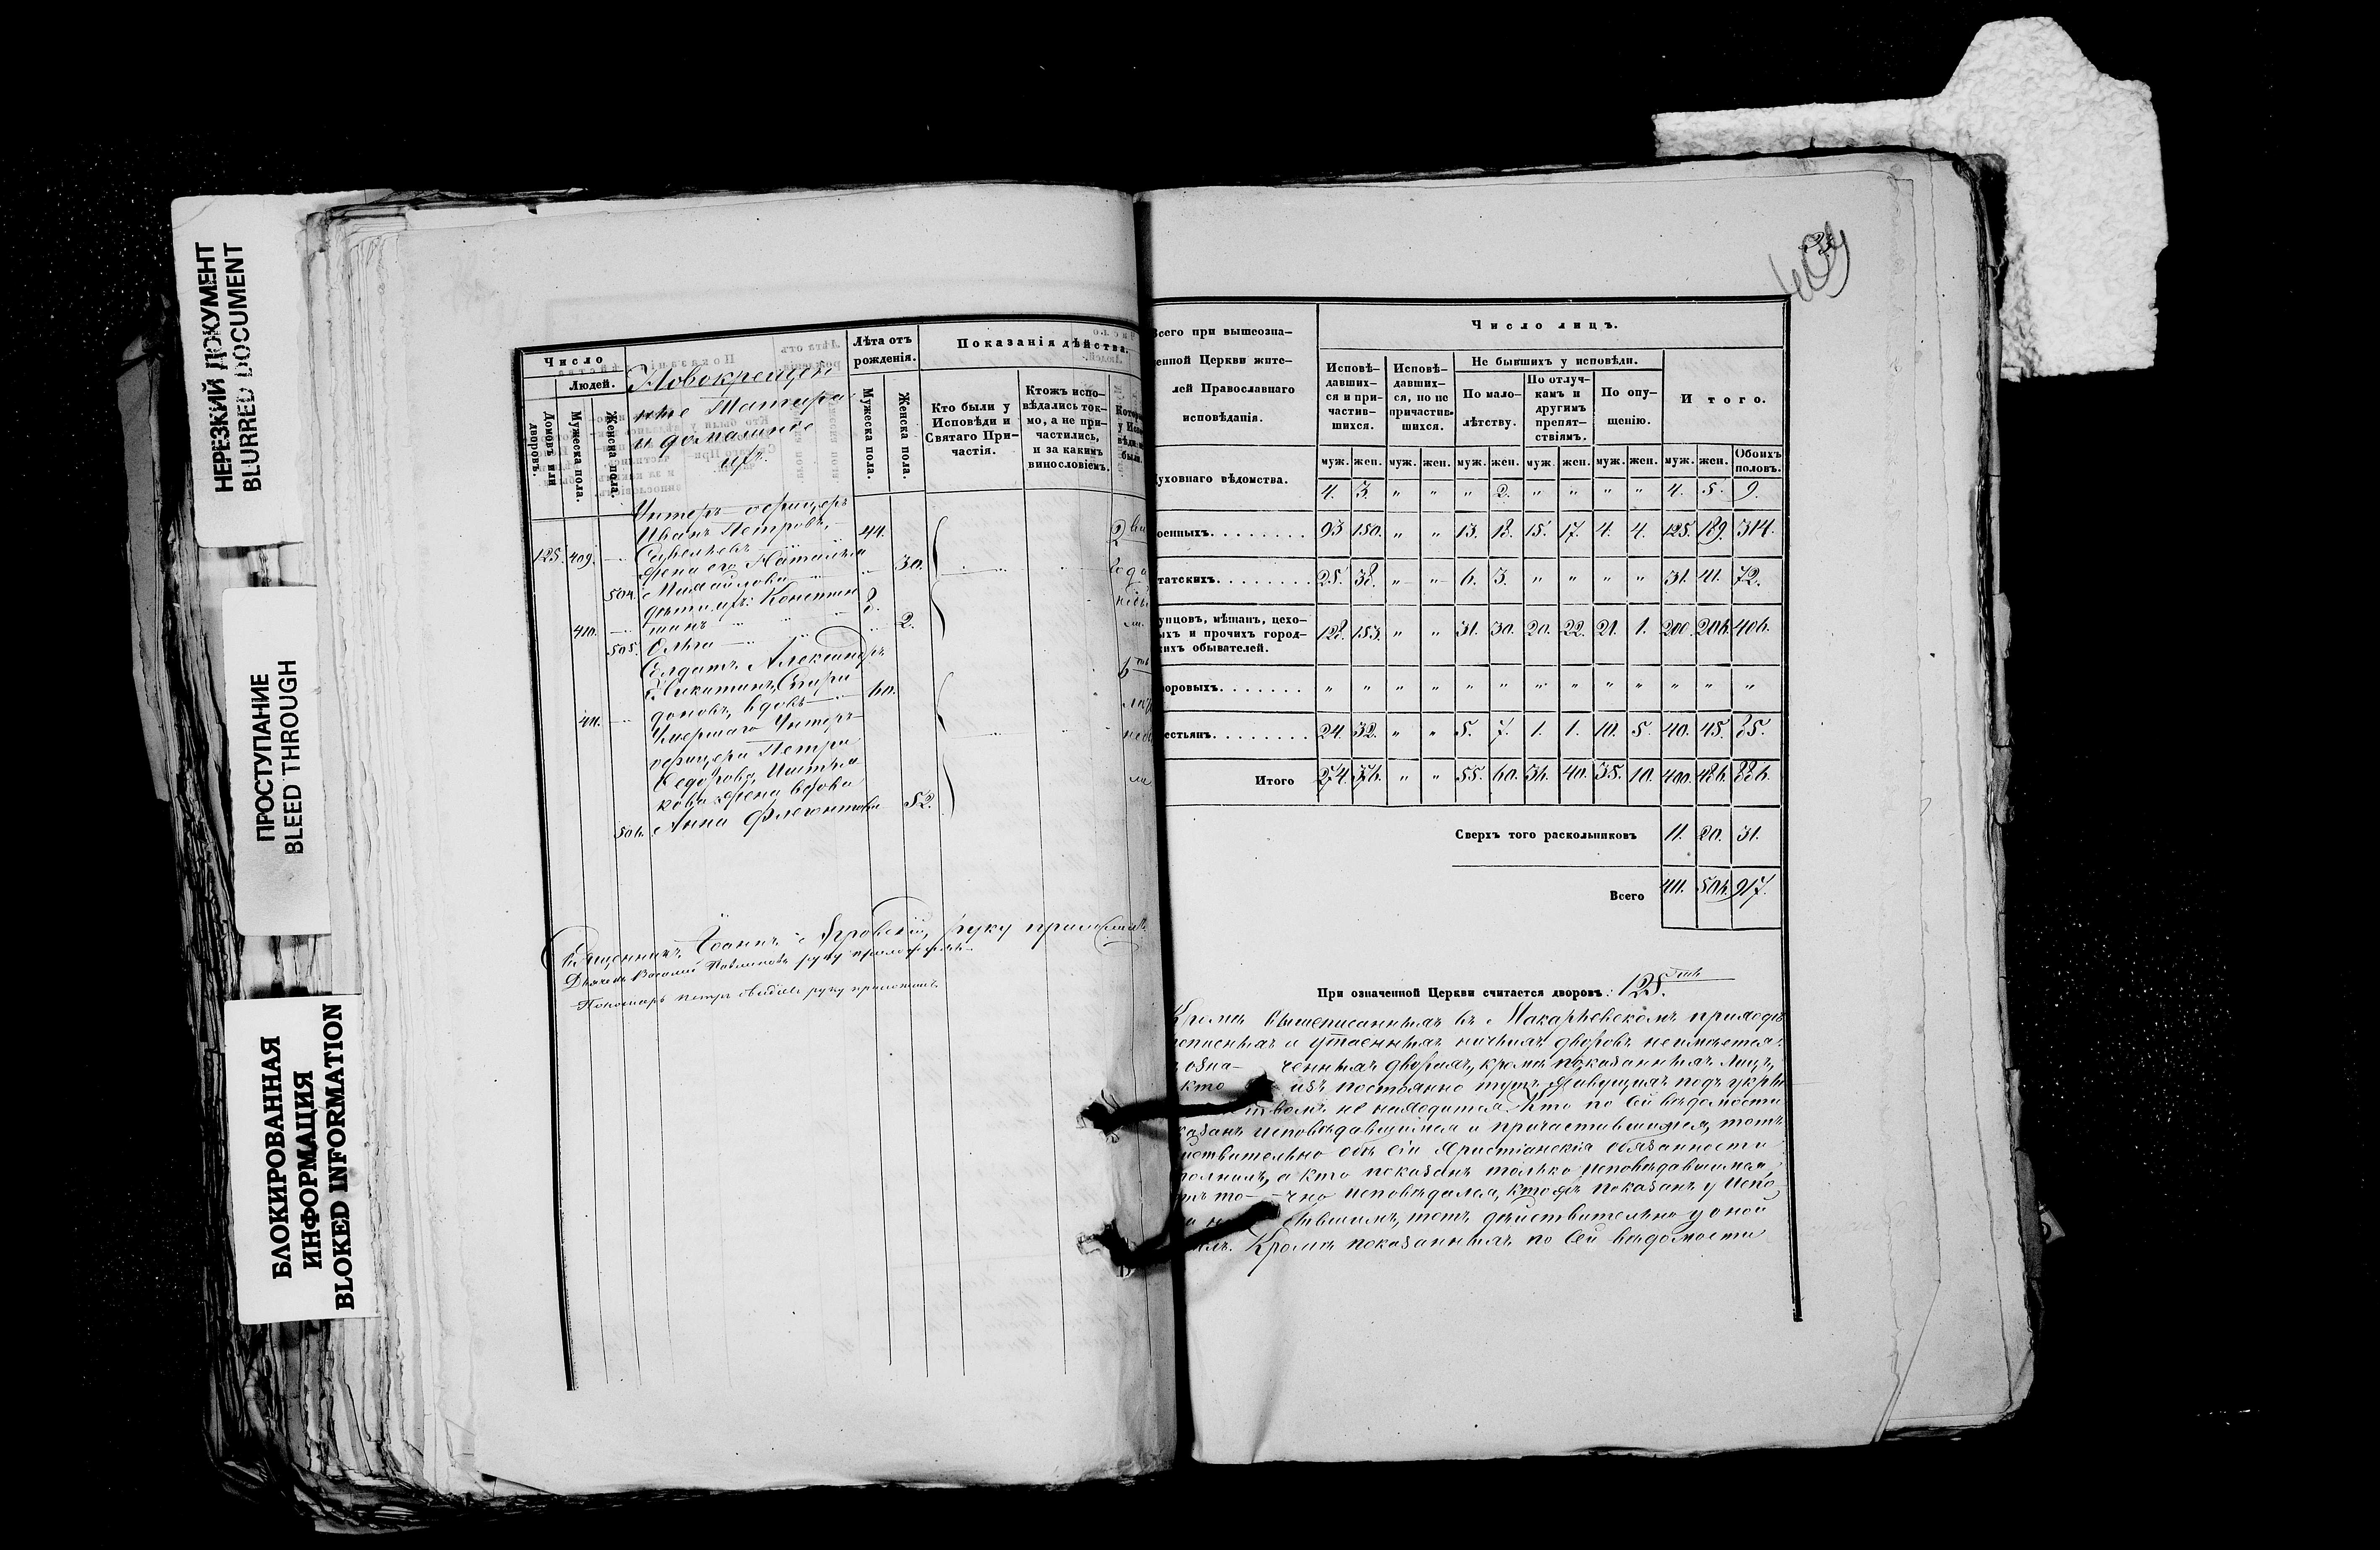 НЕРЕЗКИЙ ДОКУМЕНТ
BLURRED DOCUMENT
ПРОСТУПАНИЕ
BLEED THROUGH
БЛОКИРОВАННАЯ
ИНФОРМАЦИЯ
BLOKED INFORMATION
Число
Людей.
Домовъ или дворовъ.
Мужеска пола.
Женска пола.
Новокрещен
ные Татара
и домашніе
ихъ.
Лѣта отъ
рожденія.
Мужеска пола.
Женска пола.
Показанія дѣйства.
Кто были у
Исповѣди и
Святаго При-
частія.
Ктожъ испо-
вѣдались ток-
мо, а не при-
частились,
и за какимъ
винословіемъ.
Унтеръ-офицеръ
Иванъ Петровъ
125. 409. Савельевъ 44.
жена его Наталья
504. Михайлова 30.
дѣти ихъ: Констан
410. тинъ 8.
505. Ольга 2.
Солдатъ Александръ
Никитинъ Спири
411. доновъ, вдовъ 60.
Умершаго Унтеръ-
офицера Петра
Федорова
кова жена вдова
506. Анна Флегонтова 52.
Священникъ Іоаннъ руку приложилъ
Дьячекъ Василій руку приложилъ
Пономарь Петръ руку приложилъ.
Всего при вышеозна-
енной Церкви жите-
лей Православнаго
исповѣданія.
Число лицъ.
Исповѣ-
давших-
ся и при-
частив-
шихся.
Исповѣ-
давших-
ся, но не
причастив-
шихся.
Не бывшихъ у исповѣди.
По мало-
лѣтству.
По отлуч-
камъ и
другимъ
препят-
ствіямъ.
По опу-
щенію.
Итого.
муж. жен. муж. жен. муж. жен. муж. жен. муж. жен. муж. жен. Обоихъ половъ.
уховнаго вѣдомства. 4. 3. " " " 2. " " " " 4. 5. 9.
оенныхъ 93 150. " " 13. 18. 15. 17. 4. 4. 125. 189. 314.
татскихъ 25. 38. " " 6. 3. " " " " 31. 41. 72.
упцовъ, мѣщан, цехо-
ыхъ и прочихъ город-
кихъ обывателей. 128. 153. " " 31. 30. 20. 22. 21. 1. 200. 206. 406.
оровыхъ " " " " " " " " " " " " "
естьянъ 24. 32. " " 5. 7. 1. 1. 10. 5. 40. 45. 85.
Итого 274. 376. " " 55. 60. 36. 40. 35. 10. 400. 486. 886.
Сверхъ того раскольниковъ 11. 20. 31.
Всего 411. 506. 917.
При означенной Церкви считается дворовъ: 125.
Кромѣ вышеписанныхъ въ Макарьевскомъ приходѣ
и утаенныхъ ничьихъ дворовъ неимѣется.
ченныхъ дворахъ, кромѣ показанныхъ лицъ,
кто изъ постоянно тутъ живущихъ подъ укры
тельствомъ не находится. Кто по сей вѣдомости
казанъ исповѣдавшимся и причастившимся, тотъ
йствительно обѣ сіи Христіанскія обязанности
полнилъ, а кто показанъ только исповѣдавшимся,
то-чно исповѣдался, ктожъ показанъ у Испо
бывшимъ, тотъ дѣйствительно у оной
Кромѣ показанныхъ по сей вѣдомости